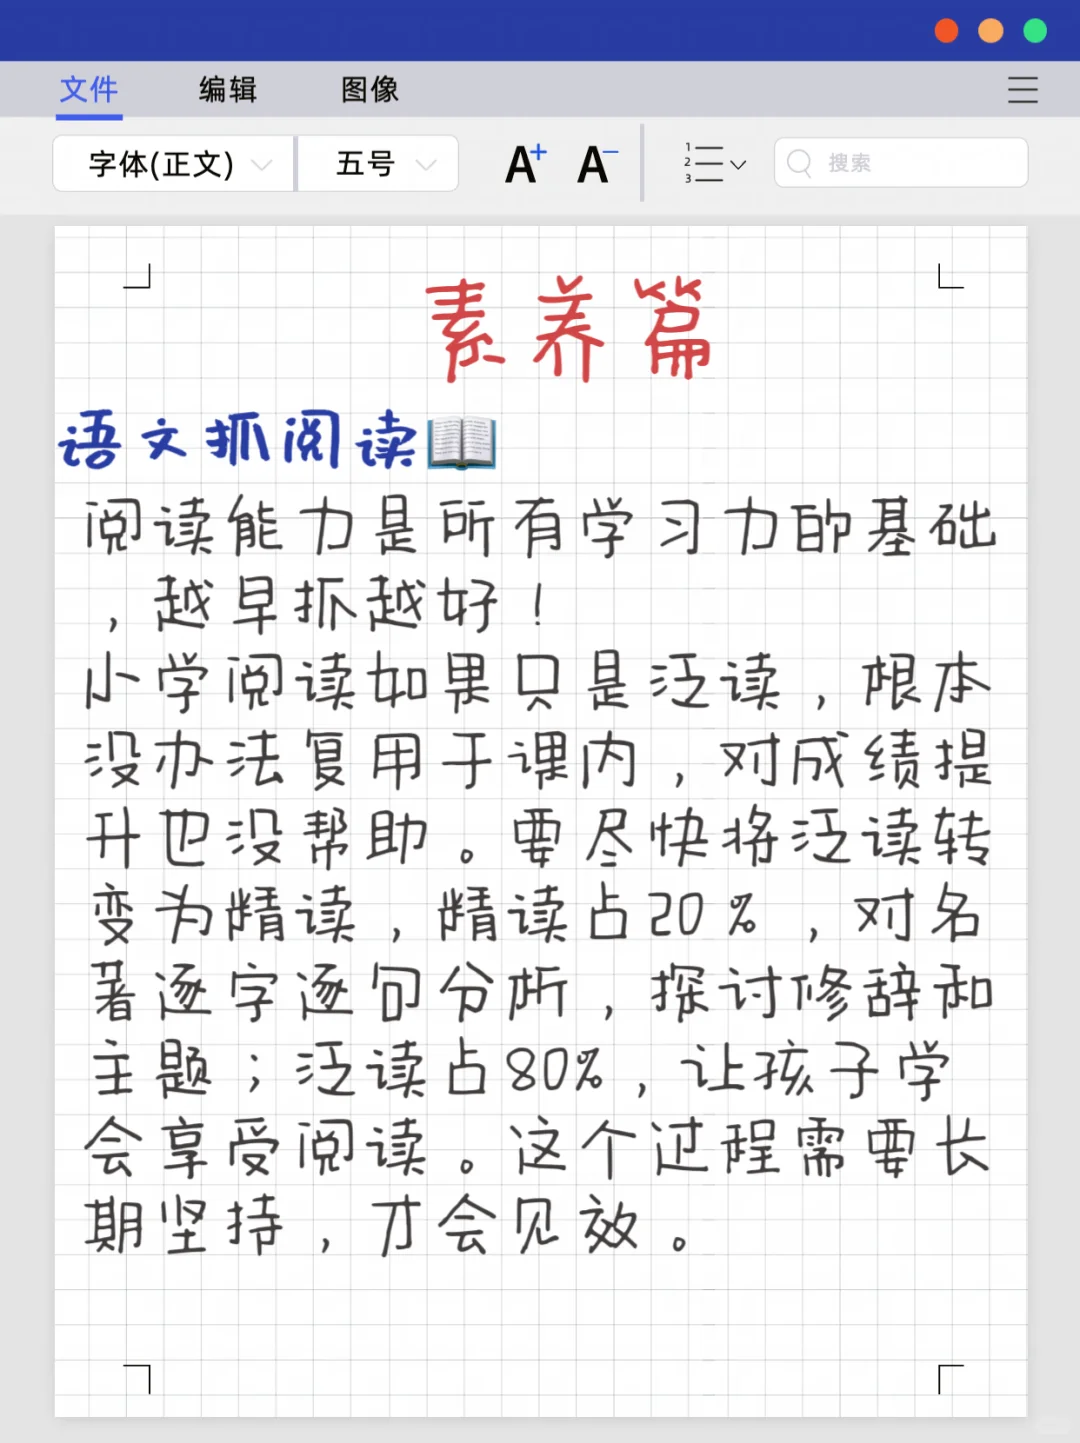 文件 编辑 图像
字体(正文) 五号 A+ A− 1 2 3 搜索
素养篇
语文抓阅读
阅读能力是所有学习力的基础
，越早抓越好！
小学阅读如果只是泛读，根本
没办法复用于课内，对成绩提
升也没帮助。要尽快将泛读转
变为精读，精读占20%，对名
著逐字逐句分析，探讨修辞和
主题；泛读占80%，让孩子学
会享受阅读。这个过程需要长
期坚持，才会见效。